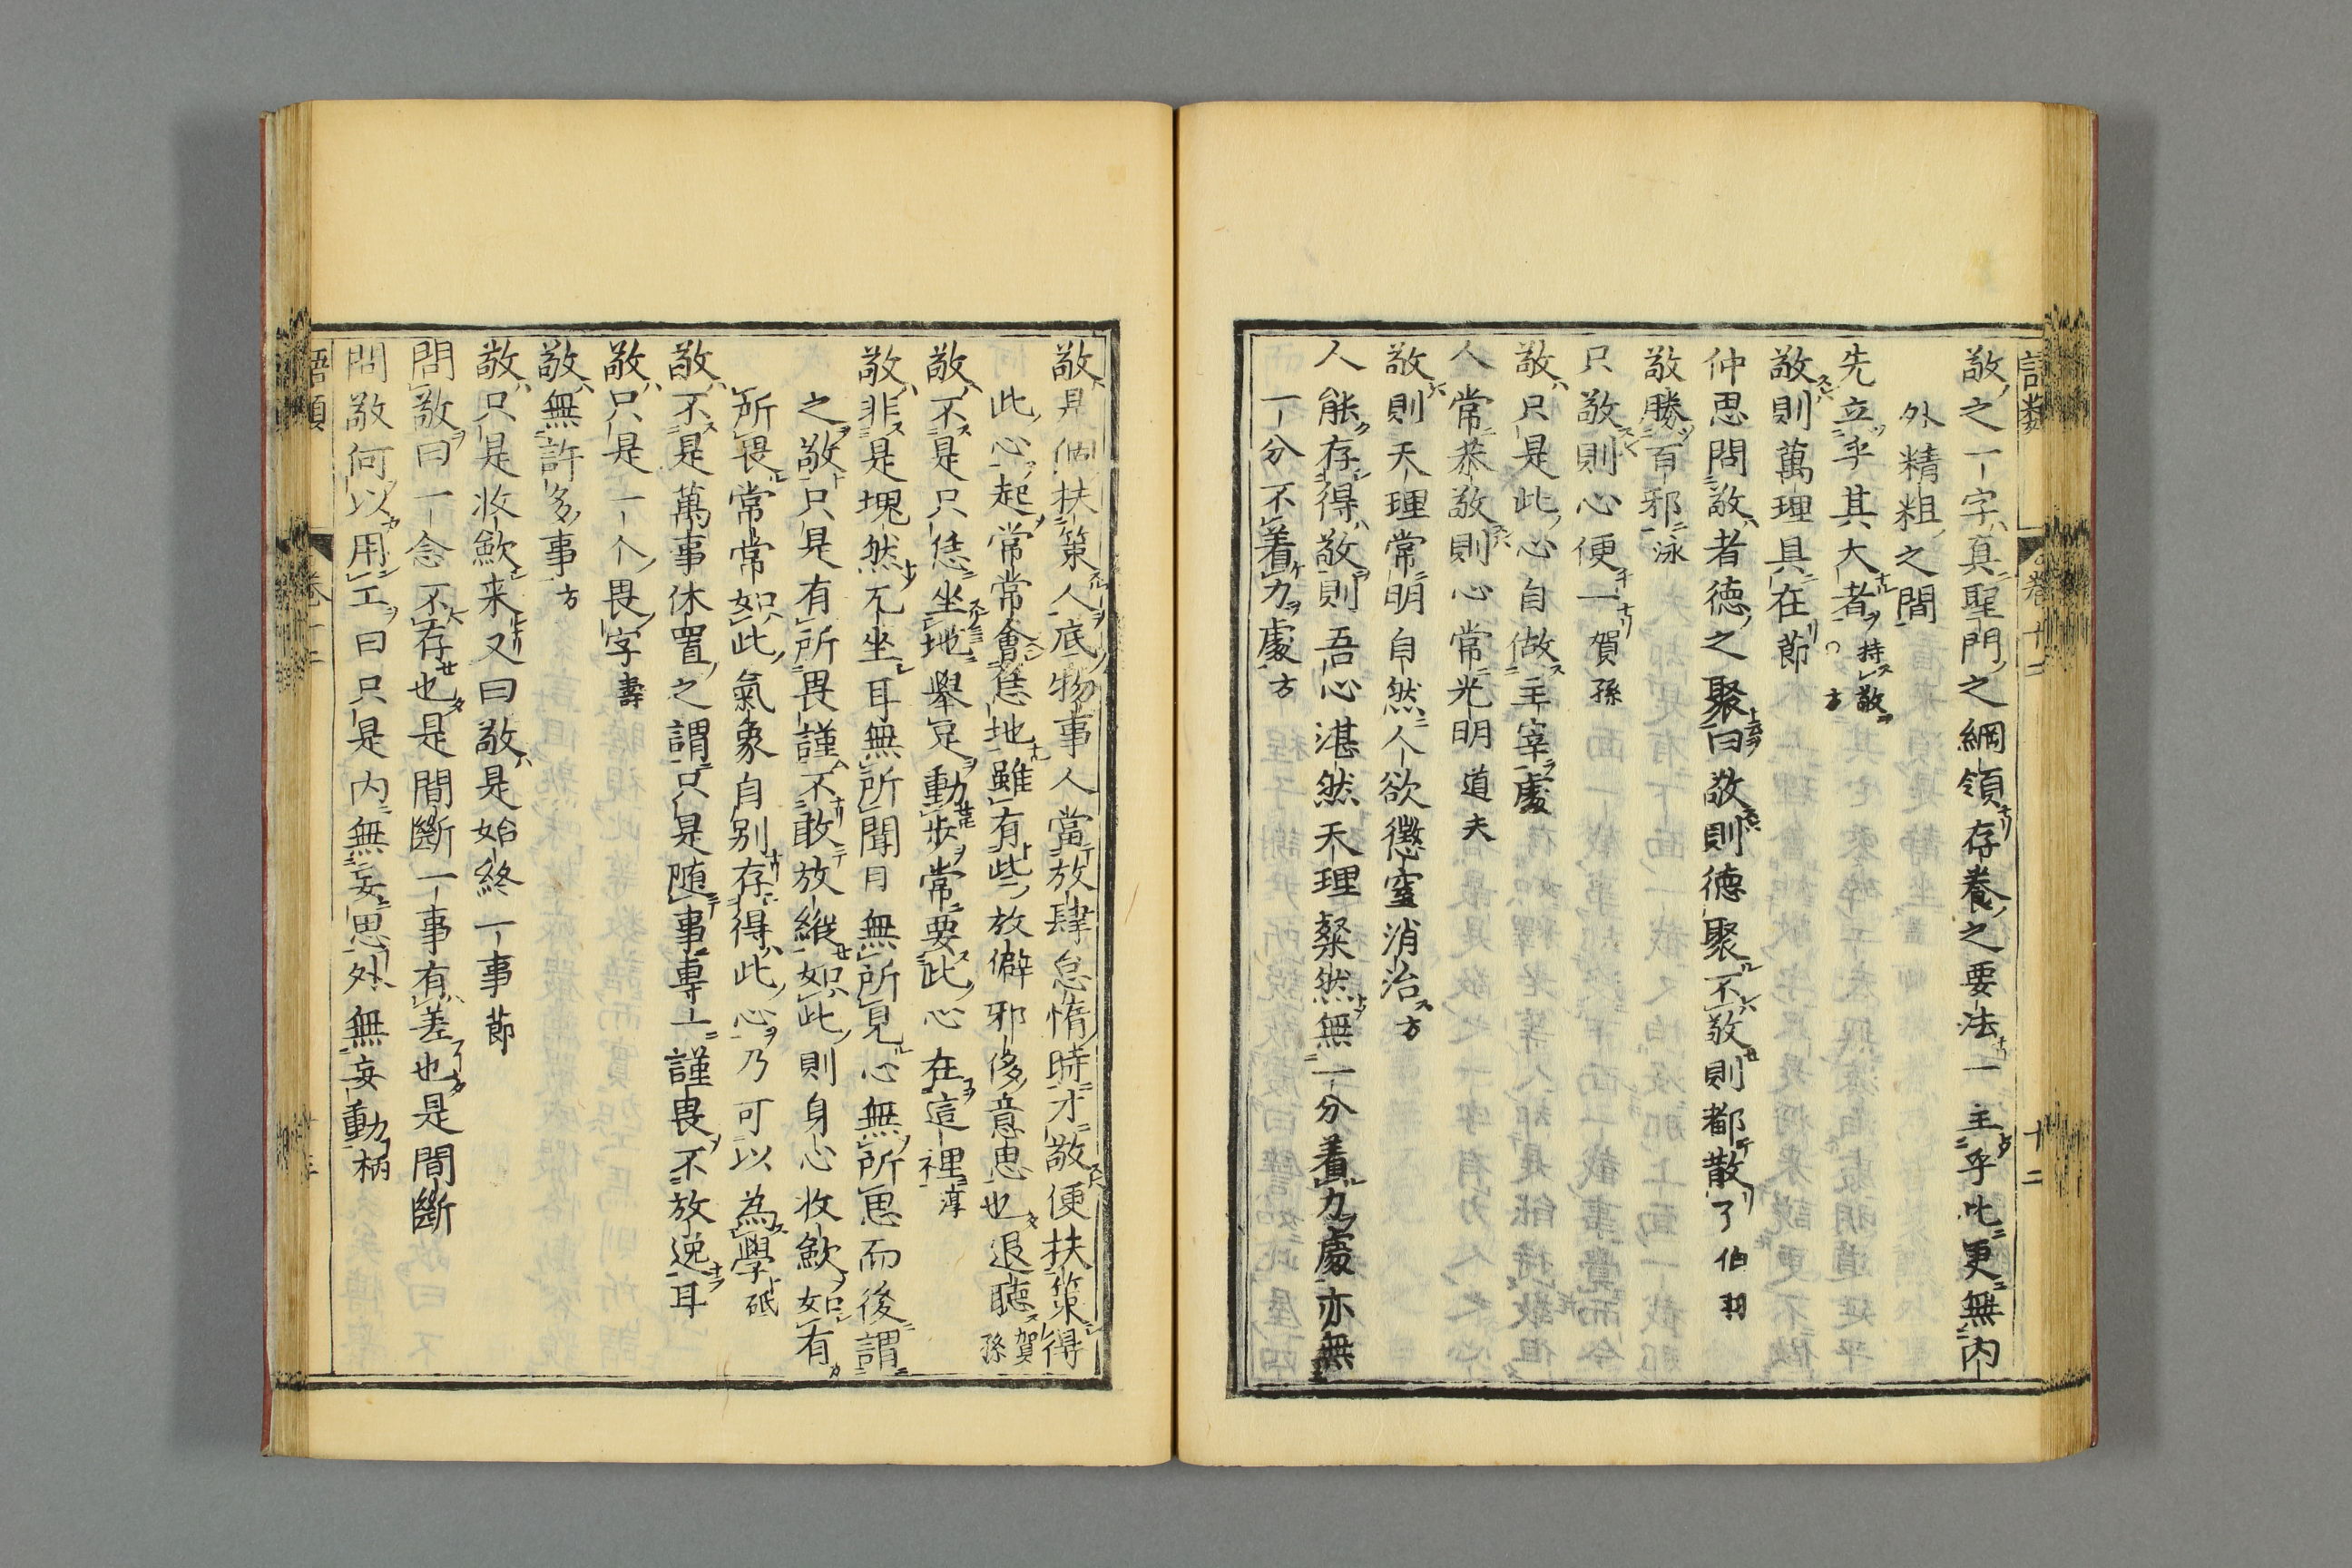 語類 卷十二 十二
敬之一字真聖門之綱領存養之要法一主乎此更無內
外精粗之間
先立乎其大者○持敬方
敬則萬理具在節
仲思問敬者德之聚曰敬則德聚不敬則都散了伯羽
敬勝百邪泳
只敬則心便一賀孫
敬只是此心自做主宰處
人常恭敬則心常光明道夫
敬則天理常明自然人欲懲窒消治方
人能存得敬則吾心湛然天理粲然無一分着力處亦無
一分不着力處方
敬是個扶策人底物事人當放肆怠惰時才敬便扶策得
此心起常常會恁地雖有些放僻邪侈意思也退聽賀孫
敬不是只恁坐地舉足動步常要此心在這裡淳
敬非是塊然兀坐耳無所聞目無所見心無所思而後謂
之敬只是有所畏謹不敢放縱如此則身心收歛如有
所畏常常如此氣象自別存得此心乃可以為學砥
敬不是萬事休置之謂只是随事專一謹畏不放逸耳
敬只是一个畏字壽
敬無許多事方
敬只是收歛来又曰敬是始終一事節
問敬曰一念不存也是間斷一事有差也是間斷
問敬何以用工曰只是內無妄思外無妄動柄
語類 卷十二